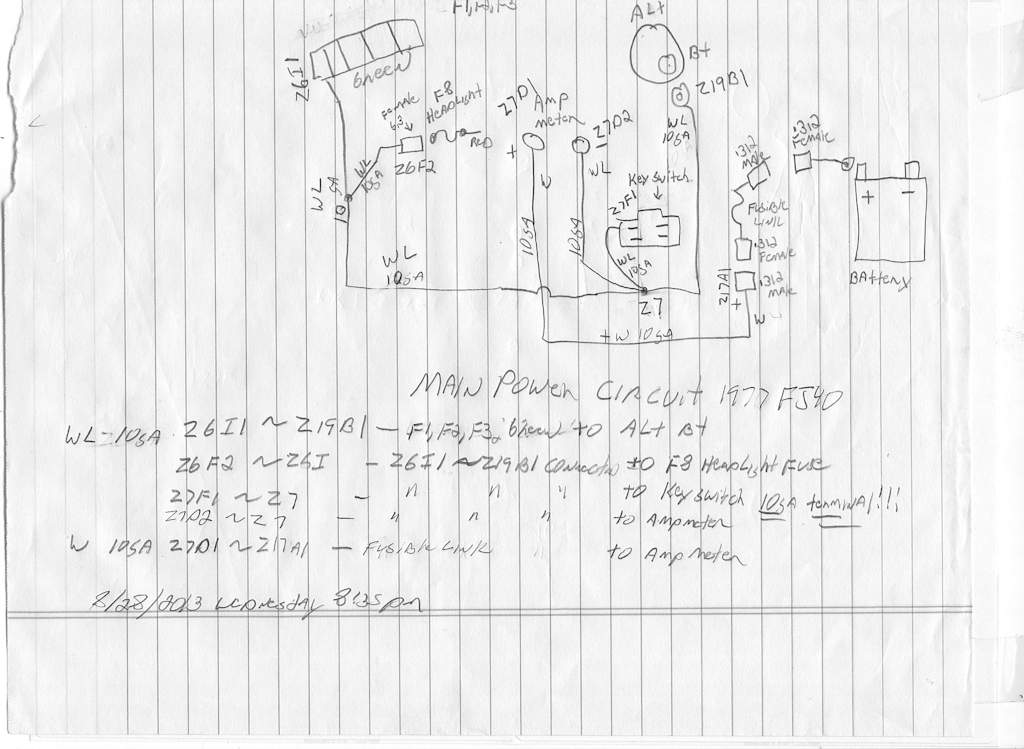 F1, F2, F3
ALt
B+
Z19B1
WL
10gA
Z6I1
Green
Female
6.3
F8
HEADLIGHT
RED
Z6F2
WL
10gA
WL
10gA
WL
10gA
Z7D1
Amp
meter
+
Z7D2
WL
10gA
10gA
Key switch
Z7F1
WL
10gA
Z7
+W 10gA
.312
male
.312
Female
FUSIBLE
LINK
.312
Female
.312
male
Z17A1
+
W
+ -
BAttery
MAIN POWER CIRCUIT 1977 FJ40
WL-10gA Z6I1 ~ Z19B1 - F1, F2, F3, "Green" to ALt B+
Z6F2 ~ Z6I - Z6I1 ~ Z19B1 to F8 HEADLIGHT FUSE
Z7F1 ~ Z7 - " " " to Key switch 10gA terminal!!!
Z7D2 ~ Z7 - " " " to Ampmeter
W 10gA Z7D1 ~ Z17A1 - FUSIBLE LINK to Amp meter
8/28/2013 WEDNESDAY 8:35pm